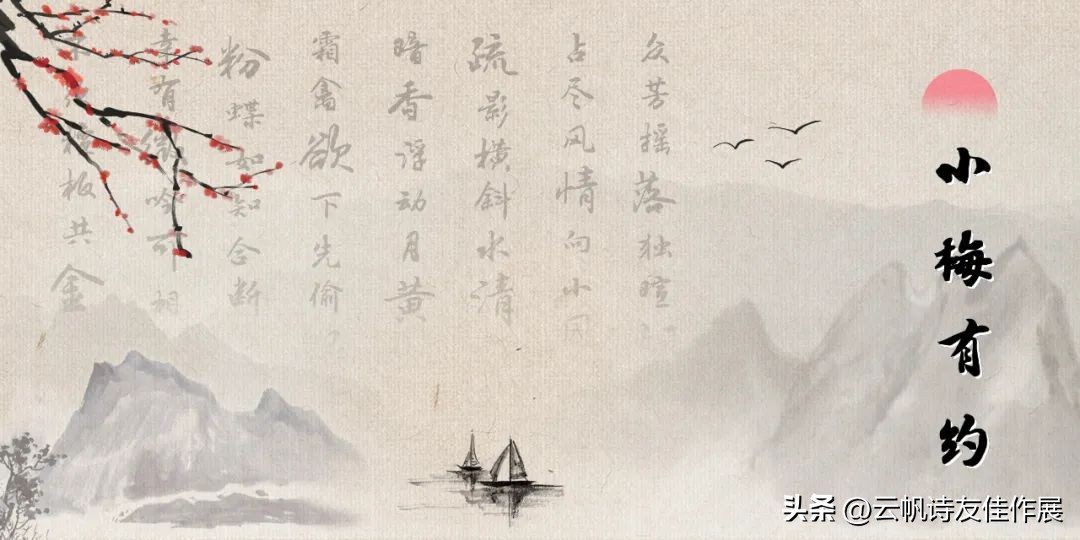 小梅有约
众芳摇落独暄
占尽风情向小园
疏影横斜水清
暗香浮动月黄
霜禽欲下先偷
粉蝶如知念断
幸有微吟可相
檀板共金
头条 @云帆诗友佳作展